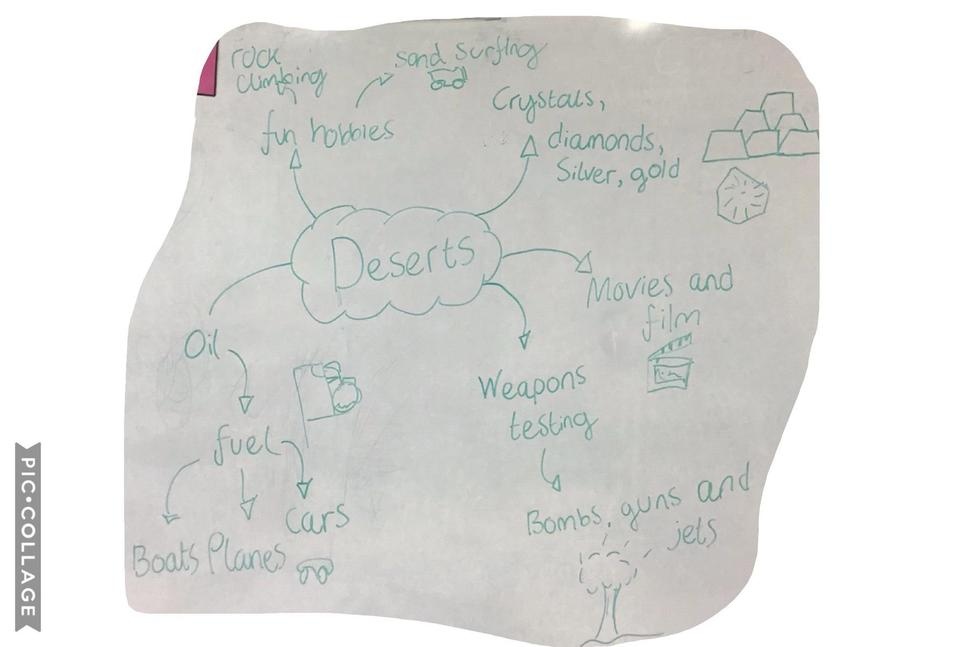 rock
climbing
sand surfing
fun hobbies
Crystals,
diamonds,
Silver, gold
Deserts
Movies and
film
Oil
Weapons
testing
fuel
Cars
Boats Planes
Bombs, guns and
jets
PIC•COLLAGE